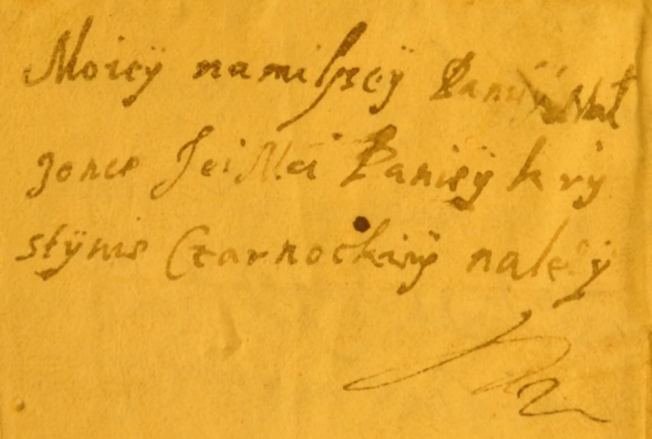 Moiey namilszey Paniÿ Mał
zonce Jei Mci Paniey kry
stÿnie Czarnockiey należÿ